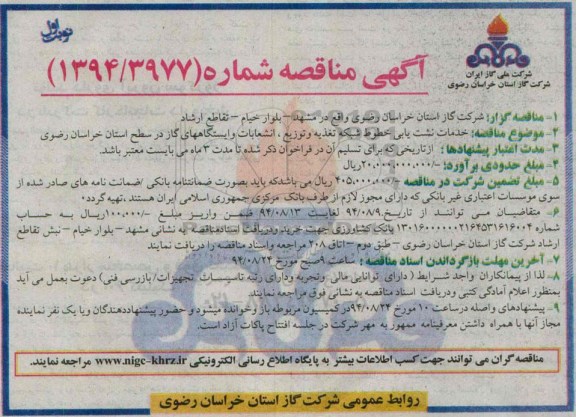 نوبت اول
شرکت ملی گاز ایران
شرکت گاز استان خراسان رضوی
آگهی مناقصه شماره(۱۳۹۴/۳۹۷۷)
۱- مناقصه گزار: شرکت گاز استان خراسان رضوی واقع در مشهد – بلوار خیام – تقاطع ارشاد
۲- موضوع مناقصه: خدمات نشت یابی خطوط شبکه تغذیه وتوزیع ، انشعابات وایستگاههای گاز در سطح استان خراسان رضوی
۳- مدت اعتبار پیشنهادها : ازتاریخی که برای تسلیم آن در فراخوان ذکر شده تا مدت ۳ ماه می بایست معتبر باشد.
۴- مبلغ حدودی برآورد: ۲۰،۰۰۰،۰۰۰،۰۰۰/-ریال
۵- مبلغ تضمین شرکت در مناقصه ۴۰۵،۰۰۰،۰۰۰/- ریال می باشدکه باید بصورت ضمانتنامه بانکی /ضمانت نامه های صادر شده از
سوی موسسات اعتباری غیر بانکی که دارای مجوز لازم از طرف بانک مرکزی جمهوری اسلامی ایران هستند ،تهیه گردد
۶- متقاضیان می توانند از تاریخ ۹۴/۰۸/۹ لغایت ۹۴/۰۸/۱۳ ضمن واریز مبلغ ۱۰۰،۰۰۰/-ریال به حساب
شماره بانک کشاورزی جهت خرید ودریافت اسنادمناقصه به نشانی مشهد – بلوار خیام – نبش تقاطع
ارشاد شرکت گاز استان خراسان رضوی – طبق دوم – اتاق ۲۰۸ مراجعه و اسناد مناقصه را دریافت نمایند
۷- آخرین مهلت بازگرداندن اسناد مناقصه : ساعت ۹صبح مورخ ۹۴/۰۸/۲۴
۸- لذا از پیمانکاران واجد شرایط ( دارای توانایی مالی وتجربه ودارای رتبه تاسیسات وتجهیزات/ بازرسی فنی) دعوت بعمل می آید
بمنظور اعلام آمادگی کتبی ودریافت اسناد مناقصه به نشانی فوق مراجعه نمایند.
۹- پیشنهادهای واصله درساعت ۱۰ مورخ ۹۴/۰۸/۲۴درکمیسیون مربوطه باز وخوانده میشود و حضور پیشنهاددهندگان ویا یک نفر نماینده
مجاز آنها با همراه داشتن معرفینامه ممهور به مهر شرکت در جلسه افتتاح پاکات آزاد است.
مناقصه گران می توانند جهت کسب اطلاعات بیشتر به پایگاه اطلاع رسانی الکترونیکی www.nigc-khrz.ir مراجعه نمایند.
روابط عمومی شرکت گاز استان خراسان رضوی